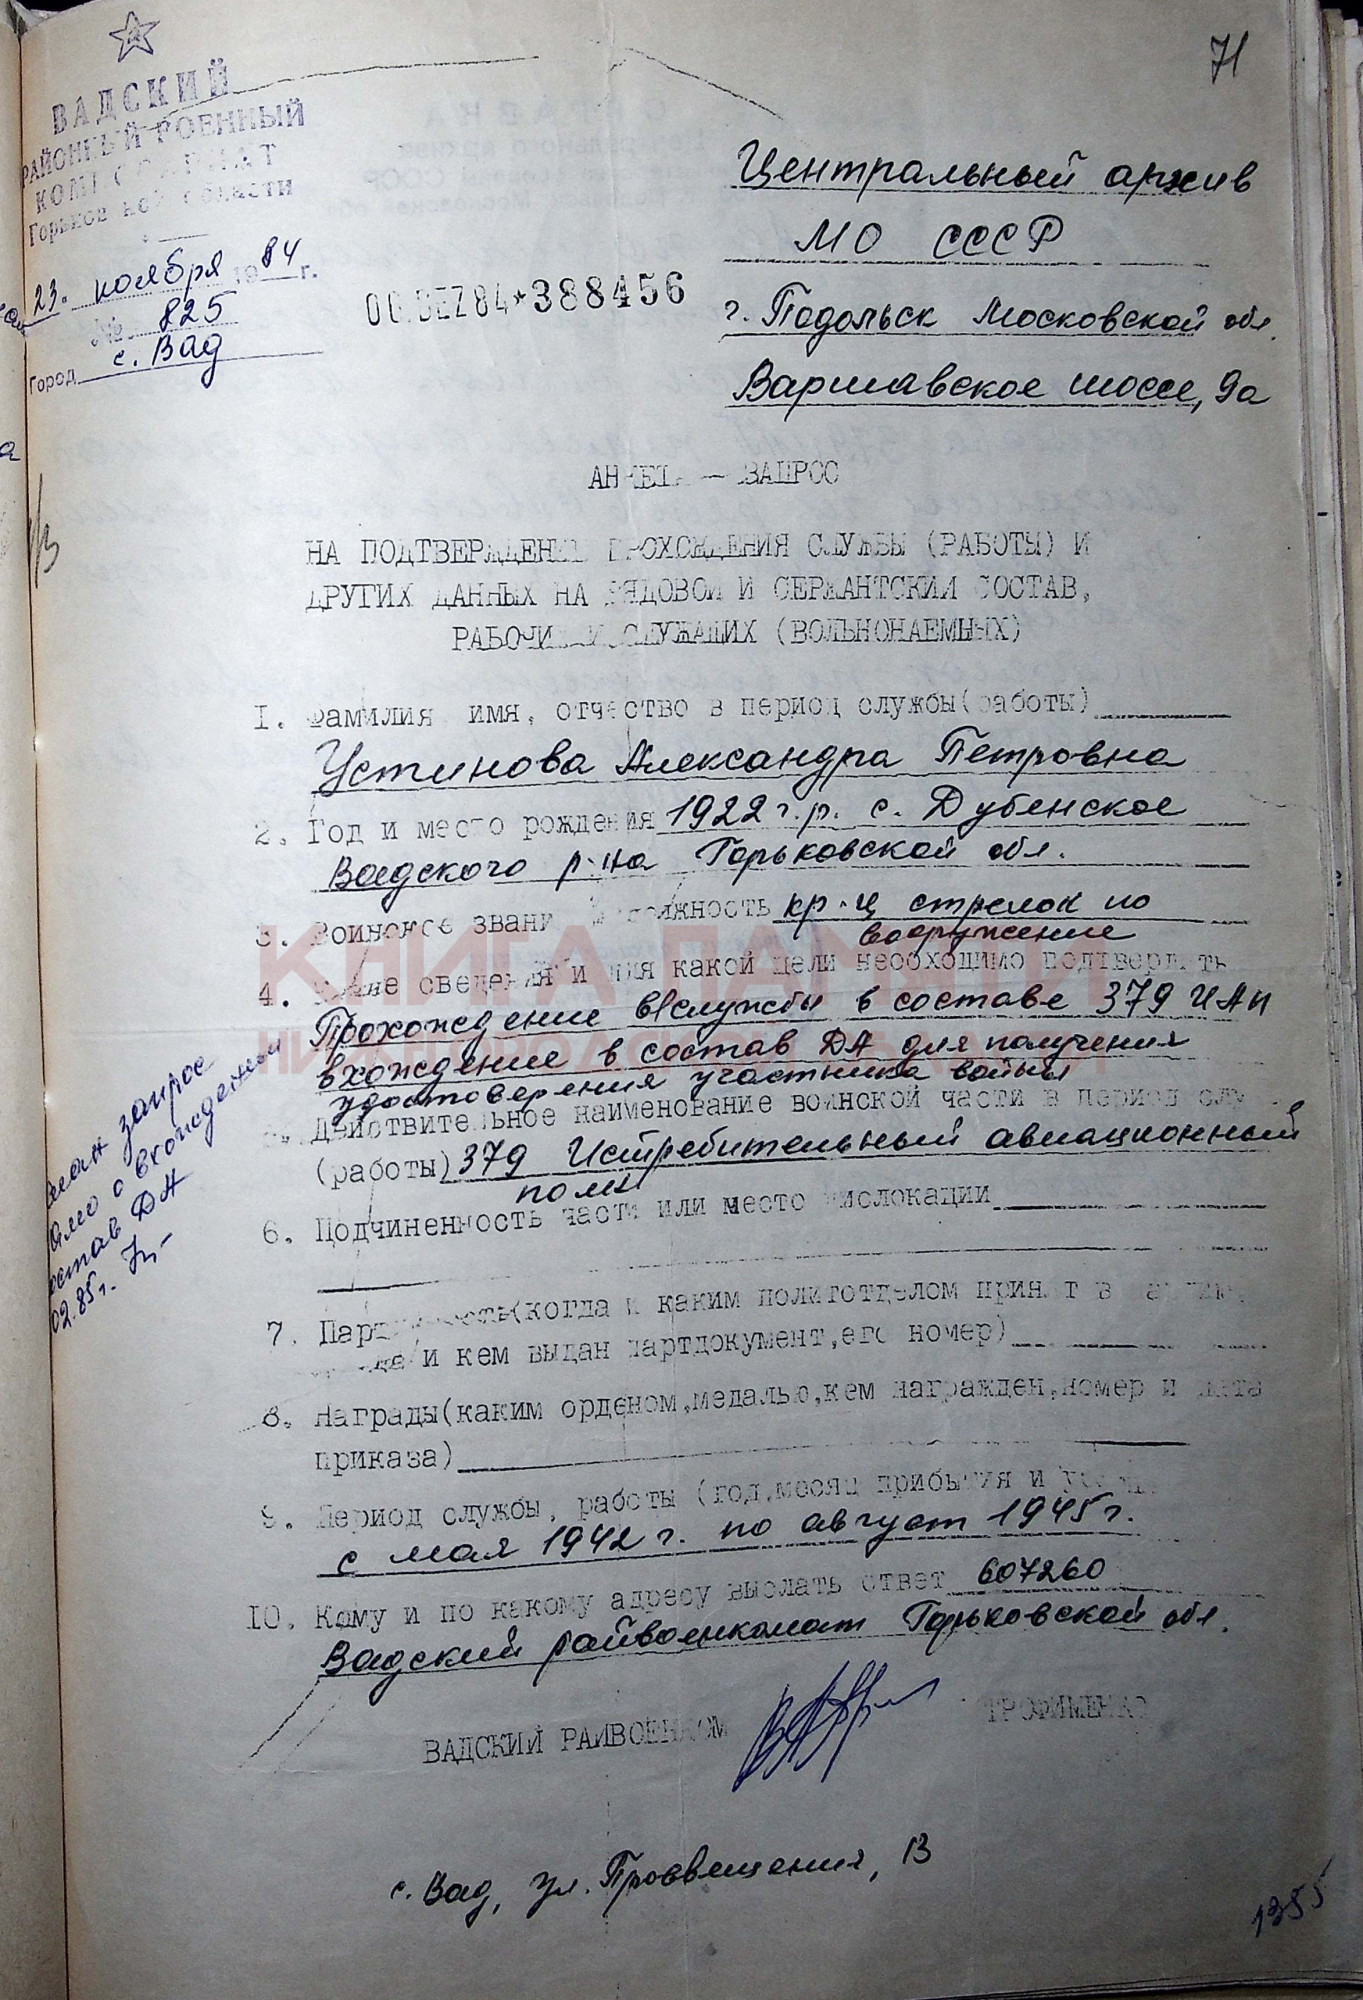 71
ВАДСКИЙ
РАЙОННЫЙ ВОЕННЫЙ
КОМИССАРИАТ
Горьковской области
23. ноября 1984 г.
№ 825
Город с. Вад
DEZ84*388456
Центральный архив
МО СССР
г. Подольск Московской обл.
Варшавское шоссе, 9а
АНКЕТА — ЗАПРОС
НА ПОДТВЕРЖДЕНИЕ ПРОХОЖДЕНИЯ СЛУЖБЫ (РАБОТЫ) И
ДРУГИХ ДАННЫХ НА РЯДОВОЙ И СЕРЖАНТСКИЙ СОСТАВ,
РАБОЧИХ И СЛУЖАЩИХ (ВОЛЬНОНАЕМНЫХ)
1. Фамилия имя, отчество в период службы(работы)
Устинова Александра Петровна
2. Год и место рождения 1922 г.р. с. Дубенское
Вадского р-на Горьковской обл.
3. Воинское звание и должность кр-ц стрелок по
вооружение
4. Какие сведения и для какой цели необходимо подтвердить
Прохождение в/службы в составе 379 ИАП
вхождение в состав ДА для получения
удостоверения участника войны
5. Действительное наименование воинской части в период
(работы) 379 Истребительный авиационный
полк
6. Подчиненность части или место дислокации
7. Партийность(когда и каким политотделом принят в партию,
когда и кем выдан партдокумент,его номер)
8. Награды(каким орденом,медалью,кем награжден,номер и дата
приказа)
9. Период службы, работы (год,месяц прибытия и
с мая 1942 г. по август 1945 г.
10. Кому и по какому адресу выслать ответ 607260
Вадский райвоенкомат Горьковской обл.
ВАДСКИЙ РАЙВОЕНКОМ ТРОФИМЕНКО
с. Вад, ул. Просвещения, 13
1355
запрос
о вхождении
состав ДА
02.85г.
КНИГА ПАМЯТИ
НИЖЕГОРОДСКОЙ ОБЛАСТИ